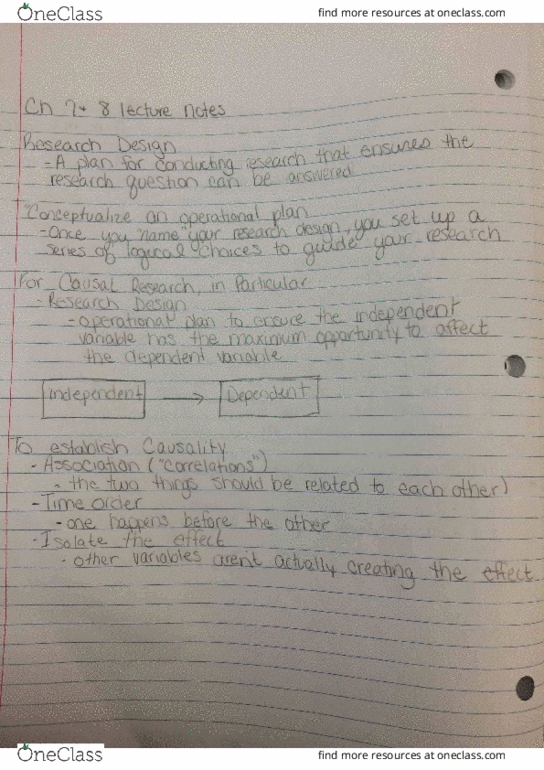 OneClass
find more resources at oneclass.com
Ch 7+ 8 lecture notes
Research Design
- A plan for conducting research that ensures the
research question can be answered
"Conceptualize an operational plan
- Once you "name" your research design, you set up a
series of logical choices to guide your research
For Causal Research, in Particular
- Research Design
- operational plan to ensure the independent
variable has the maximum opportunity to affect
the dependent variable
Independent → Dependent
To establish Causality
- Association ("correlations")
- the two things should be related to each other)
- Time order
- one happens before the other
- Isolate the effect
- other variables arent actually creating the effect
OneClass
find more resources at oneclass.com